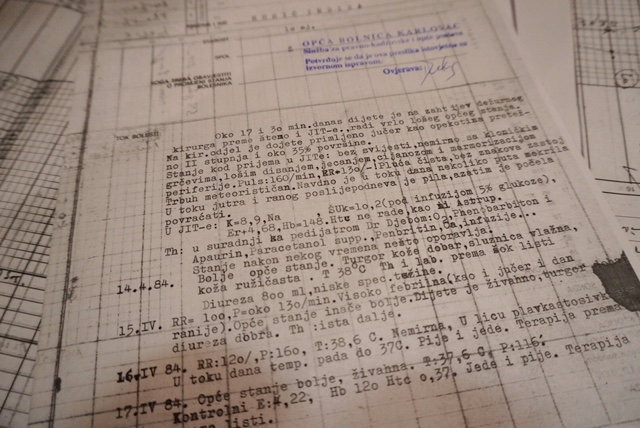 OPĆA BOLNICA KARLOVAC
Služba za pravne kadrovske i opće poslove
Potvrđuje se da je ova preslika istovjetna sa
izvornom ispravom.
Ovjerava:
SPOL
TOK BOLESTI
Oko 17 i 30 min. danas dijete je na zahtijev dežurnog
kirurga preme šteno i JIT-e., radi vrlo lošeg općeg stanja.
Na kir.odjel je dojete primljeno jučer kao opekotina pretež-
no II stupnja i oko 35% površine.
Stanje kod prijema u JITe: bez svijesti, nemirno sa kloničkim
grčevima, lošim disanjem, ječanjem, cijanozom i marmorizacijom
periferije. Puls:160/min, RR=130/-(Pluća čista, bez znakova zastoj
Trbuh meteorističan. Navdno je u toku dana nekoliko puta mokrila
U toku jutra i ranog poslijepodneva je pila, azatim je počela
povraćati.
U JIT-e: K=8,9, Na , ŠUk=10,2(pod infuzijom 5% glukoze),
Er=4,68, Hb=148. Htc ne rade, kao ni Astrup.
Th: u suradnji sa pedijatrom Dr Djetom: O2, Phenobarbiton i
Apaurin, Paracetamol supp., Penbritin, Ca, infuzije...
Stanje nakon nekog vremena nešto oporavlja.
14.4.84. Bolje opće stanje. Turgor kože dobar, sluznica vlažna,
koža ružičasta . T 38°C Th i lab. prema šok listi
Diureza 800 ml, niske spec. težine.
15.IV. RR= 100, P=oko 130/min. Visoko febrilna(kao i jučer i dan
ranije). Opće stanje inače bolje. Dijete je živahno, turgor
diureza dobra. Th :ista dalje.
16.IV 84. RR:120/, P:160, T:38,6 C. Nemirna, U licu plavkastosivk
U toku dana temp. pada do 37C. Pije i jede. Terapija prema
17.IV 84. Opće stanje bolje, živahna. T:37,6 C, P:116.
Kontrolni E:4,22, Hb 120 Htc 0,37. Jede i pije. Terapija
listi.